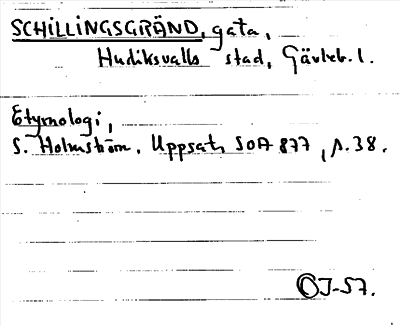 SCHILLINGSGRÄND, gata,
Hudiksvalls stad, Gävleb. l.
Etymologi,
S. Holmström. Uppsats SOA 877, s. 38.
OJ-57.